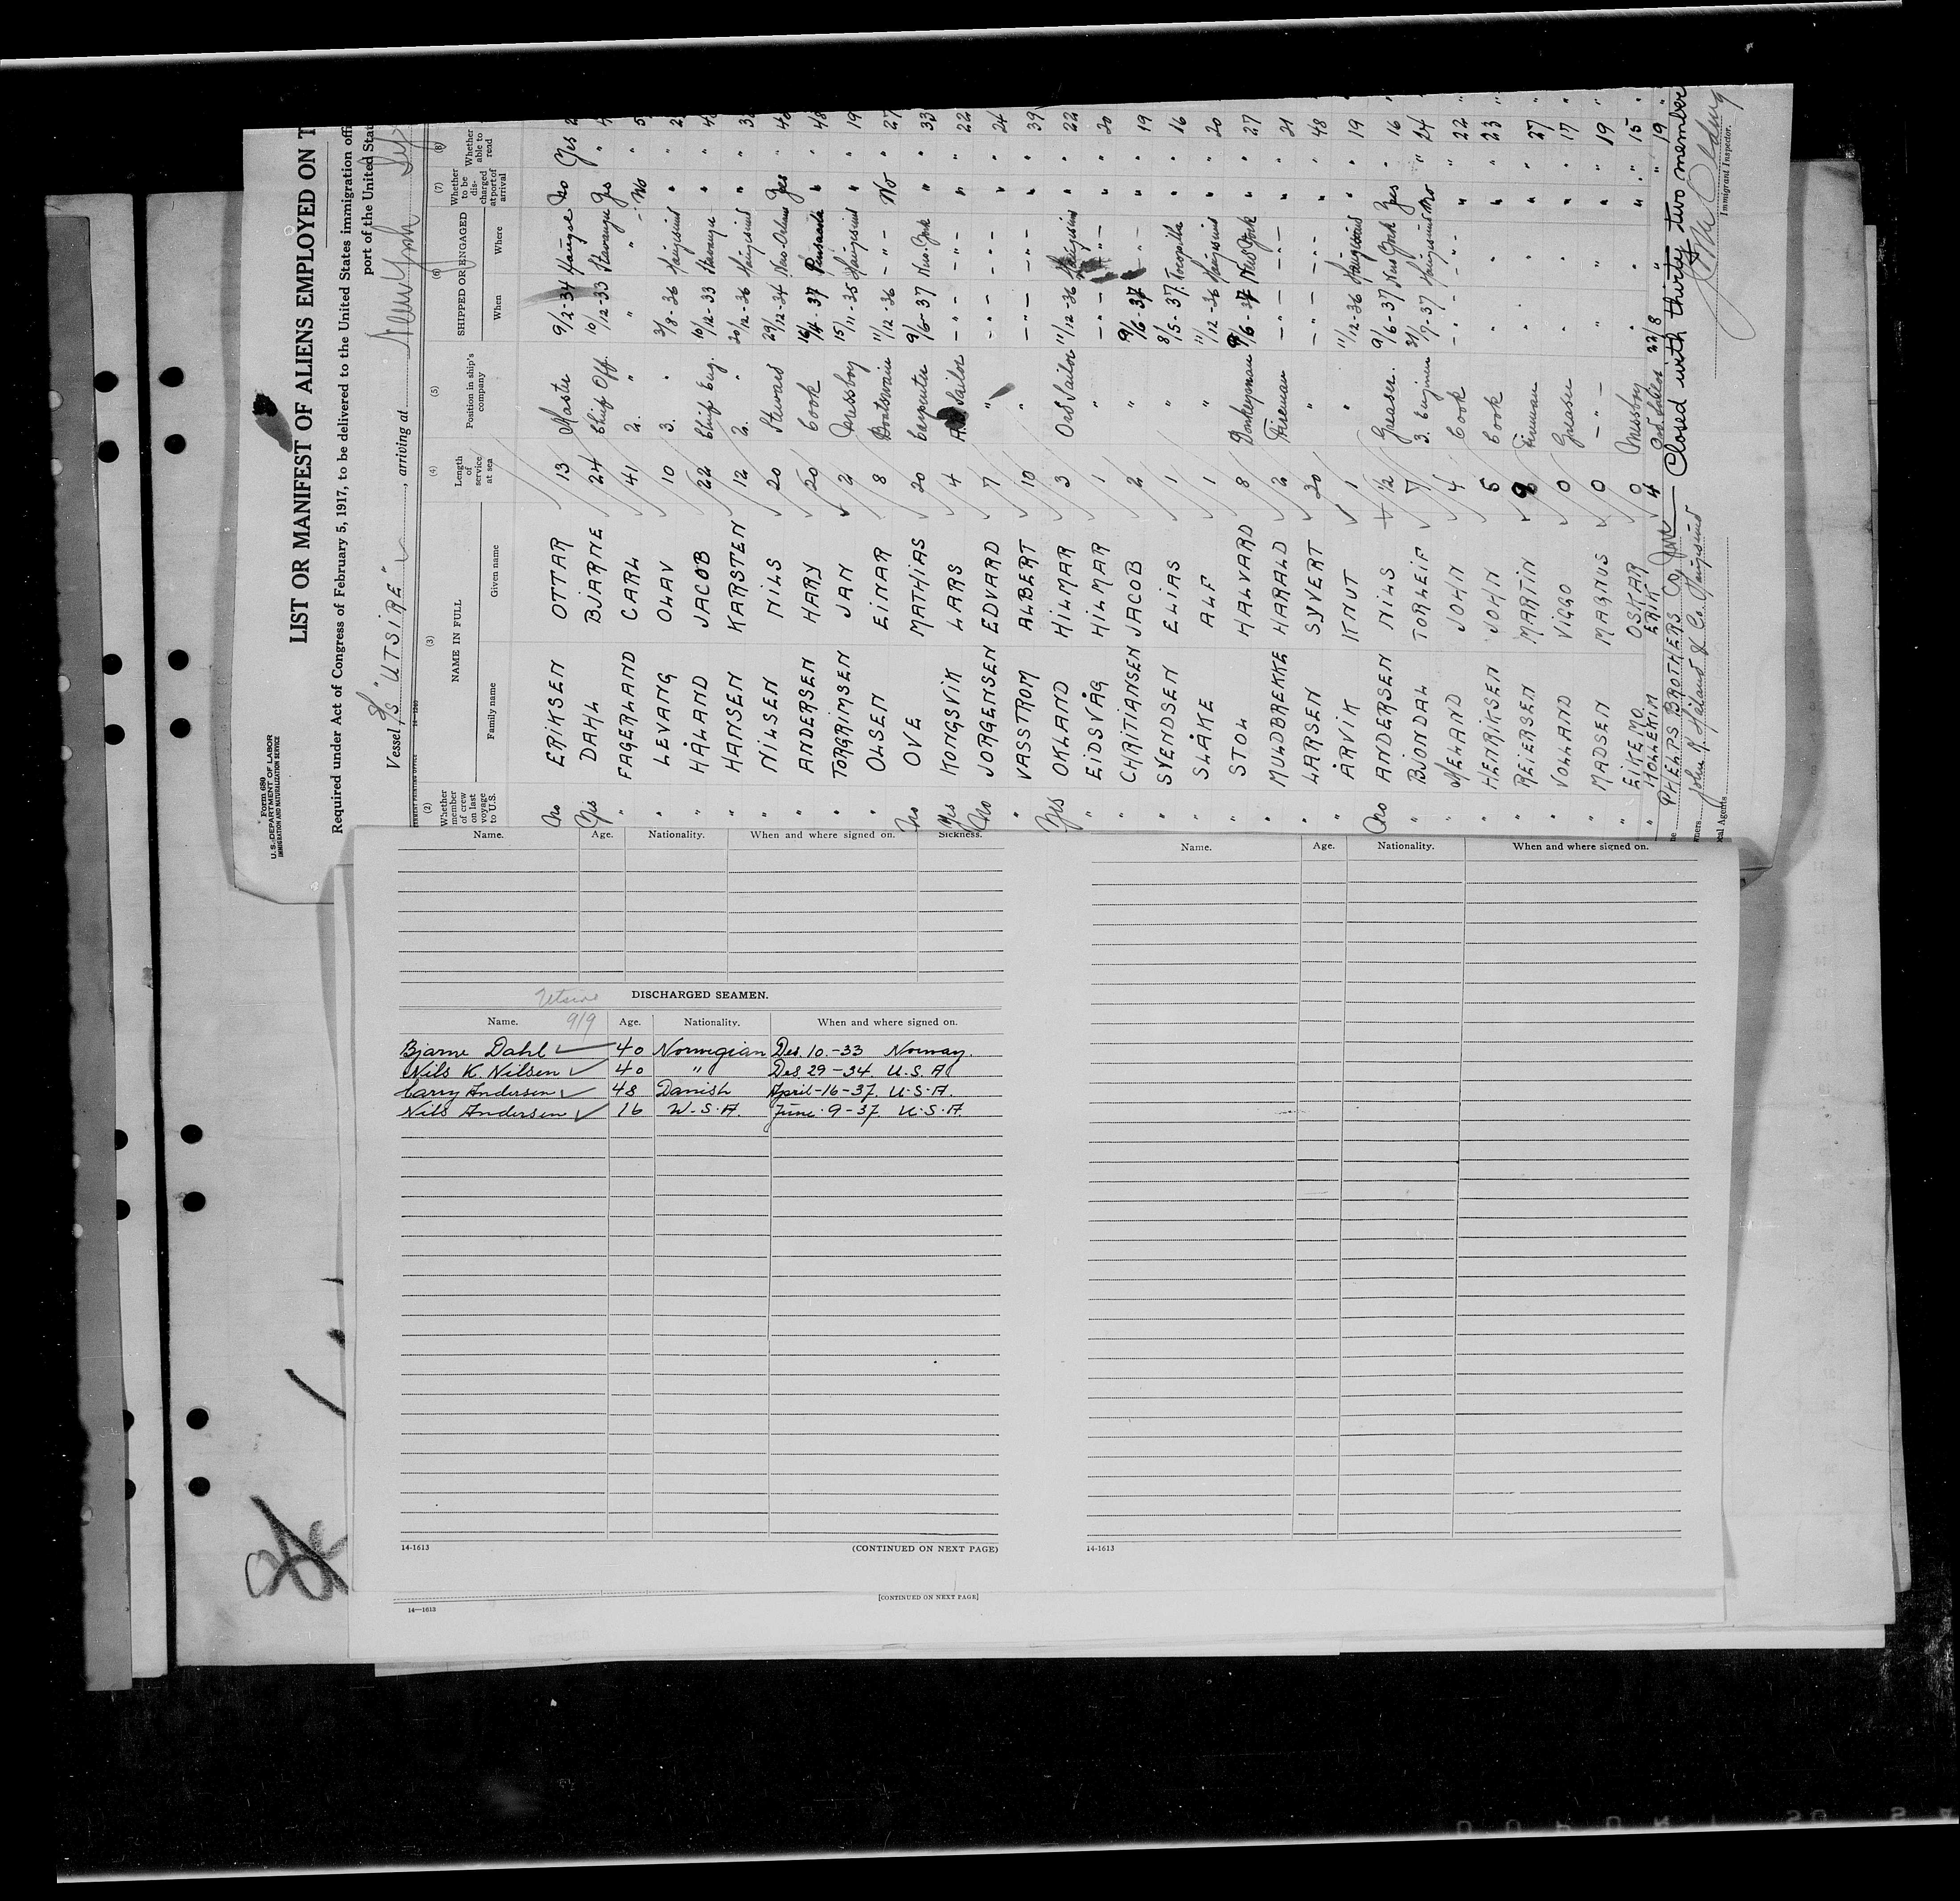 Form 680
U. S. DEPARTMENT OF LABOR
IMMIGRATION AND NATURALIZATION SERVICE
LIST OR MANIFEST OF ALIENS EMPLOYED ON T
Required under Act of Congress of February 5, 1917, to be delivered to the United States immigration offi
port of the United Stat
Vessel S/S "UTSIRE", arriving at New York
(2) Whether member of crew on last voyage to U.S. (3) NAME IN FULL Family name Given name (4) Length of service at sea (5) Position in ship's company (6) SHIPPED OR ENGAGED When Where (7) Whether to be discharged at port of arrival (8) Whether able to read
No ERIKSEN OTTAR 13 Master 9/2-34 No Yes
Yes DAHL BJARNE 24 Chief Off. 10/12-33 Stavanger Yes "
" FAGERLAND CARL 41 2. " " " No "
" LEVANG OLAV 10 3. " 3/8-36 Haugesund " "
" HÅLAND JACOB 22 Chief Eng. 10/12-33 Stavanger " "
" HANSEN KARSTEN 12 2. " 20/12-36 Haugesund " "
" NILSEN NILS 20 Steward 29/12-34 New-Orleans Yes "
" ANDERSEN HARY 20 Cook 16/4-37 Pensacola " " 48
" TORGRIMSEN JAN 2 Messboy 15/11-35 Haugesund " " 19
" OLSEN EINAR 8 Boatswain 11/12-36 - " - No " 27
No OVE MATHIAS 20 Carpenter 9/6-37 New-York " " 33
Yes KONGSVIK LARS 4 Sailor - " - - " - " " 22
No JORGENSEN EDVARD 7 " - " - - " - " " 24
" VASSTROM ALBERT 10 " - " - - " - " " 39
Yes OKLAND HILMAR 3 Ord Sailor 11/12-36 Haugesund " " 22
" EIDSVÅG HILMAR 1 " - " - - " - " " 20
" CHRITIANSEN JACOB 2 " 9/6-37 - " - " " 19
" SVENDSEN ELIAS 1 " 8/5-37 Tocopilla " " 16
" SLÅKE ALF 1 " 11/12-36 Haugesund " " 20
" STOL HALVARD 8 Donkeyman 9/6-37 New York " " 27
" MULDBREKKE HARALD 2 Fireman - " - - " - " " 21
" LARSEN SYVERT 20 " - " - - " - " " 48
" ÅRVIK KNUT 1 " 11/12-36 Haugesund " " 19
No ANDERSEN NILS 1/2 Greaser. 9/6-37 New York Yes " 16
" BJONDAL TORLEIF 7 3. Enginer 31/7-37 Haugesund No " 24
" MELAND JOHN 4 Cook - " - - " - " " 22
" HENRIKSEN JOHN 5 Cook " " " " 23
" REIERSEN MARTIN Fireman " " " " 27
" VOLLAND VIGGO 0 Greaser " " " " 17
" MADSEN MAGNUS 0 - " - " " " " 19
" EIKEMO OSKAR 0 Messboy " " " " 15
" MOLLEKIM ERIK 4 Ord Sailor 22/8 " " " 19
PHELPS BROTHERS Closed with thirty two member
John K. Haland & Co. Haugesund
Immigrant Inspector.
Name. Age. Nationality. When and where signed on. Sickness.
DISCHARGED SEAMEN.
Utsire
9/9
Name. Age. Nationality. When and where signed on.
Bjarne Dahl 40 Norwegian Des. 10.-33 Norway.
Nils K. Nilsen 40 " Des 29-34. U.S.A
Carry Andersen 48 Danish April-16-37. U.S.A.
Nils Andersen 16 U.S.A. June. 9-37 U.S.A.
14-1613 (CONTINUED ON NEXT PAGE)
14—1613 [CONTINUED ON NEXT PAGE]
Name. Age. Nationality. When and where signed on.
14-1613
OK